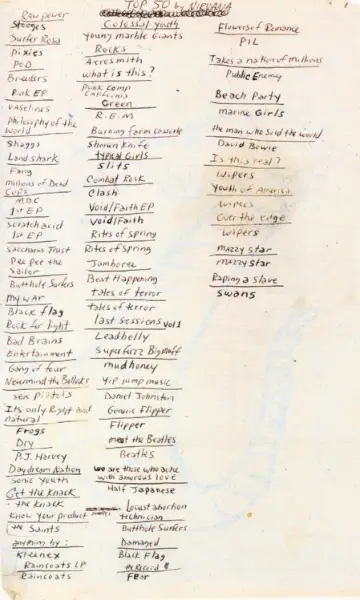 TOP 50 by NIRVANA
Raw power
Stooges
Surfer Rosa
pixies
POD
Breeders
Pink EP
vaselines
Philosophy of the
world
Shaggs
Landshark
Fang
millions of Dead
Cops
M.D.C
1st EP
scratch acid
1st EP
Saccharine Trust
Pee pee the
Sailor
Butthole Surfers
my war
Black flag
Rock for light
Bad Brains
Entertainment
Gang of four
Nevermind the Bollocks
sex pistols
Its only Right and
natural
Frogs
Dry
P.J. Harvey
Daydream Nation
Sonic Youth
Get the Knack
the Knack
Know your product
the Saints
anything by:
Kleenex
Raincoats LP
Raincoats
Colossal youth
young marble Giants
Rocks
Aerosmith
what is this?
Punk comp
California
Green
R.E.M
Burning farm cassette
Shonen Knife
typical Girls
Slits
Combat Rock
Clash
Void/Faith EP
Void/Faith
Rites of Spring
Rites of Spring
Jamboree
Beat Happening
tales of terror
tales of terror
last sessions vol 1
Leadbelly
Superfuzz Bigmuff
mudhoney
Yip jump music
Daniel Johnston
Generic Flipper
Flipper
meet the Beatles
Beatles
we are those who ache
with amorous love
Half Japanese
Locust abortion
technician
Butthole Surfers
Damaged
Black Flag
the Record
Fear
Flowers of Romance
PIL
Takes a nation of millions
Public Enemy
Beach Party
marine Girls
the man who Sold the world
David Bowie
Is this real?
Wipers
Youth of America
Wipers
Over the edge
Wipers
mazzy star
mazzy star
Raping a Slave
Swans